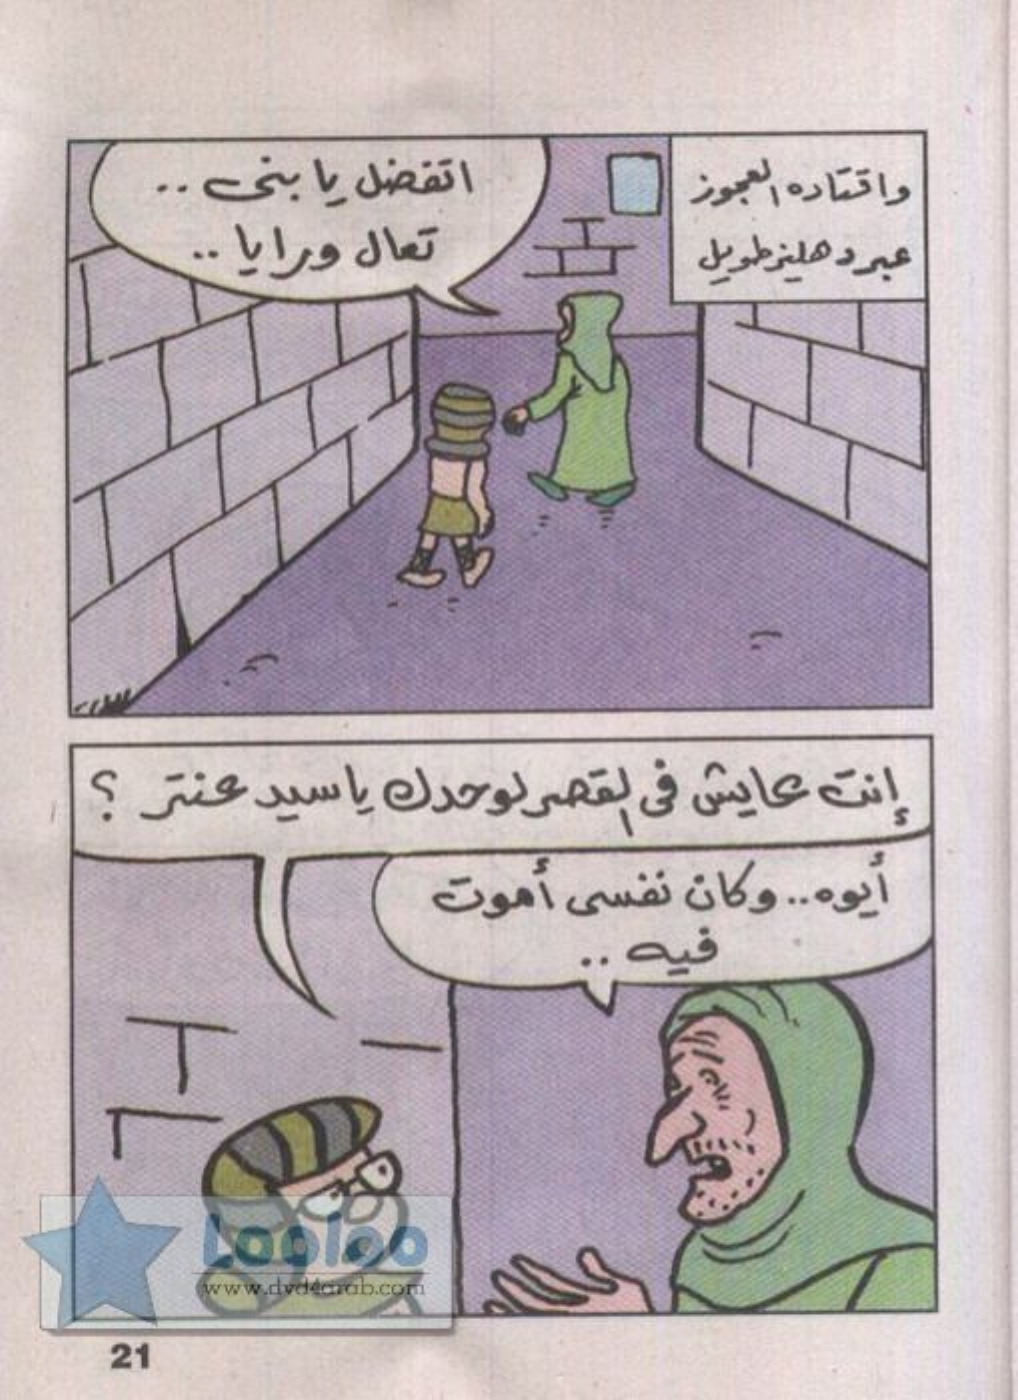 واقتاده العجوز
عبر دهليز طويل
اتفضل يا بنى ..
تعال ورايا ..
إنت عايش فى القصر لوحدك يا سيد عنتر ؟
أيوه .. وكان نفسى أموت
فيه ..
looloo
www.dvd4arab.com
21